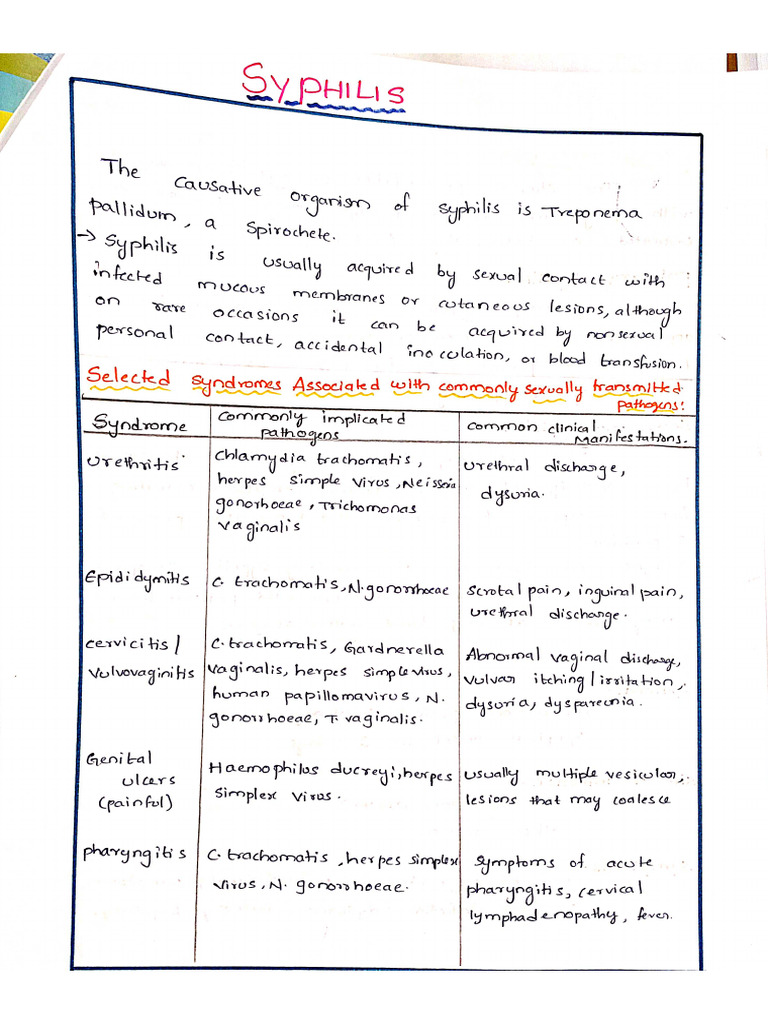 SYPHILIS
The causative organism of syphilis is Treponema
pallidum, a spirochete.
→ Syphilis is usually acquired by sexual contact with
infected mucous membranes or cutaneous lesions, although
on rare occasions it can be acquired by nonsexual
personal contact, accidental inoculation, or blood transfusion.
Selected syndromes Associated with commonly sexually transmitted
pathogens:
Syndrome
commonly implicated
pathogens
common clinical
Manifestations.
urethritis
Chlamydia trachomatis,
herpes simple virus, Neisseria
gonorhoeae, Trichomonas
vaginalis
urethral discharge,
dysuria.
Epididymitis
C. trachomatis, N. gonorrhoeae
Scrotal pain, inguinal pain,
urethral discharge.
cervicitis/
vulvovaginitis
C. trachomatis, Gardnerella
vaginalis, herpes simple virus,
human papillomavirus, N.
gonorrhoeae, T. vaginalis.
Abnormal vaginal discharge,
vulvar itching/irritation,
dysuria, dyspareunia.
Genital
ulcers
(painful)
Haemophilus ducreyi, herpes
simplex virus.
usually multiple vesicular,
lesions that may coalesce
pharyngitis
C. trachomatis, herpes simplex
virus, N. gonorrhoeae.
symptoms of acute
pharyngitis, cervical
lymphadenopathy, fever.